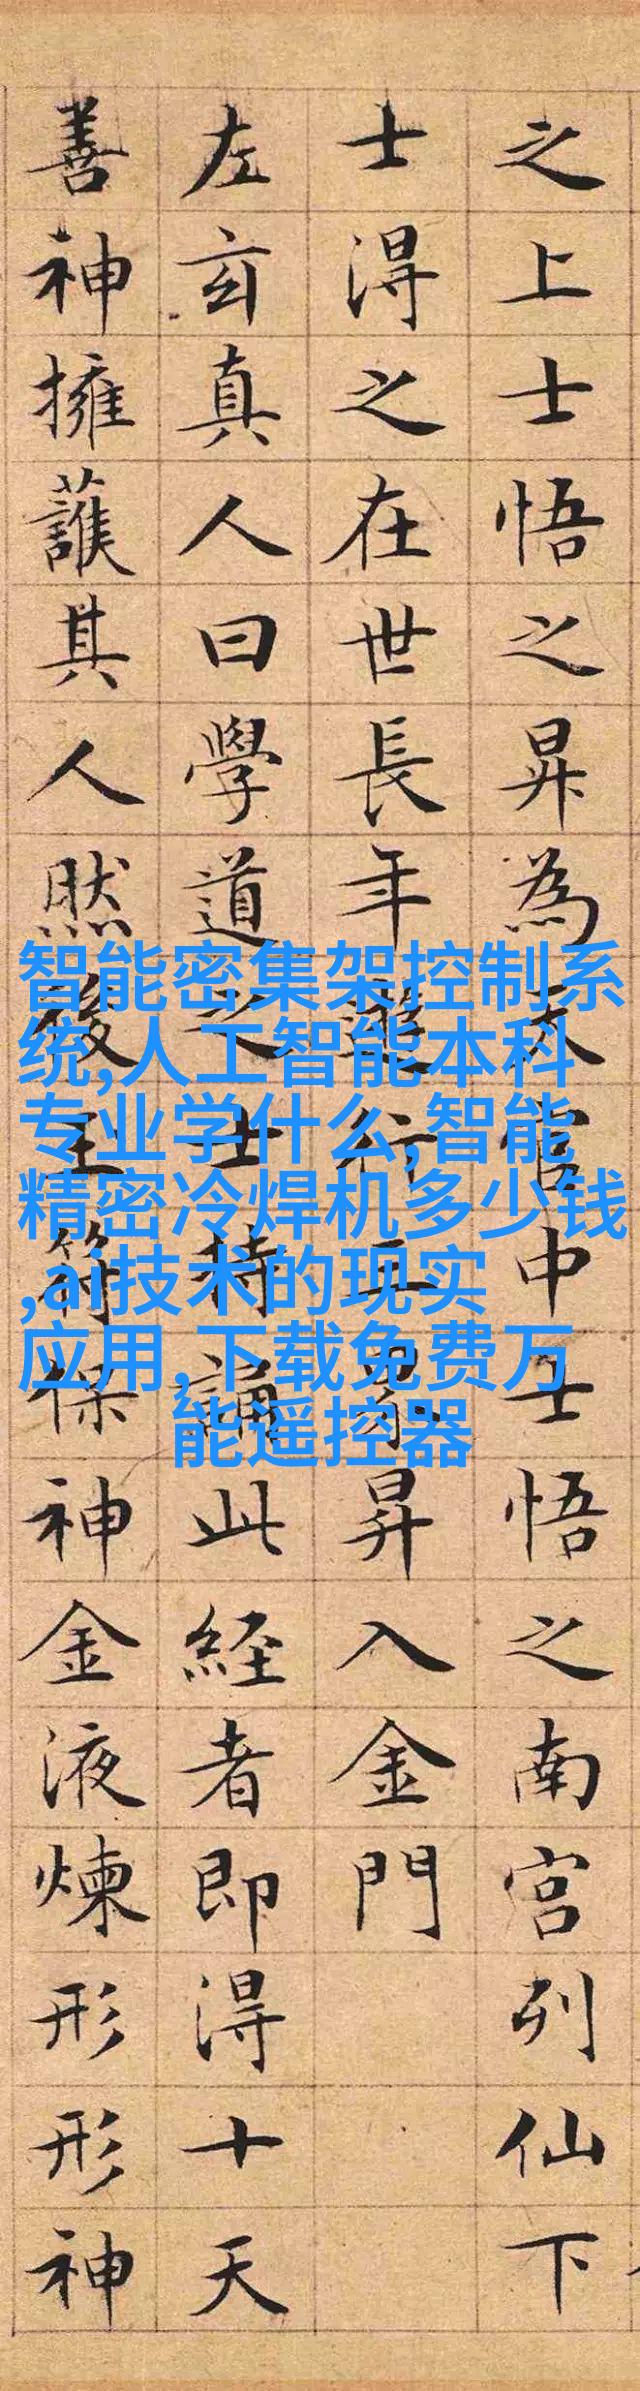 之上士悟之昇為天官中士悟之南宮列仙下
士得之在世長年遊行三界昇入金門
左玄真人曰學道之士持誦此經者即得十天
善神擁護其人然後玉符保神金液煉形形神
智能密集架控制系
统,人工智能本科
专业学什么,智能
精密冷焊机多少钱
,ai技术的现实
应用,下载免费万
能遥控器